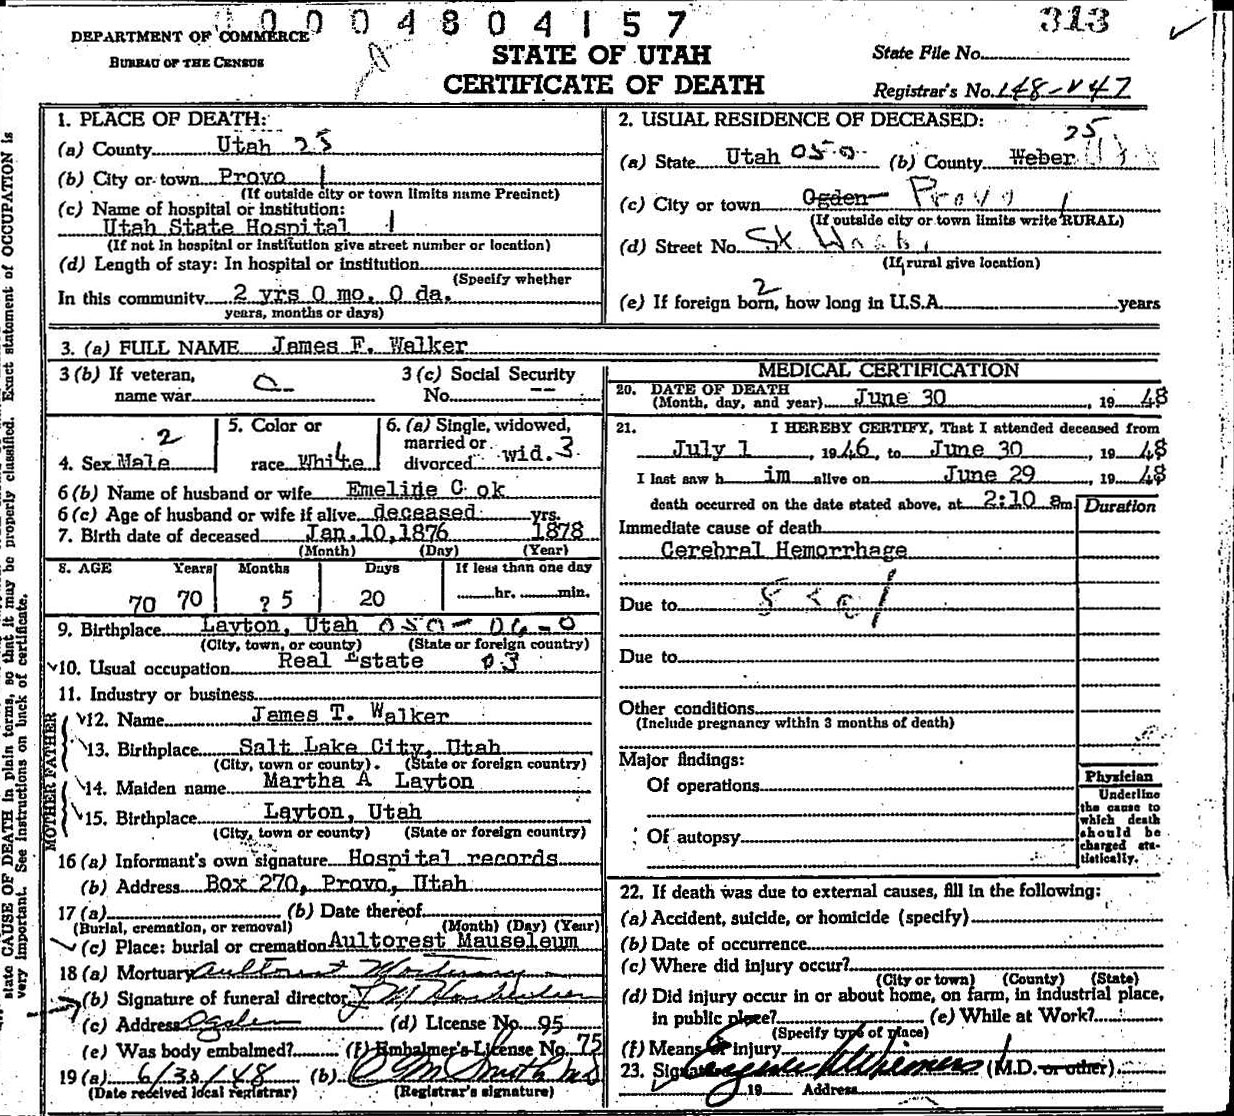 0004804157
313
DEPARTMENT OF COMMERCE
BUREAU OF THE CENSUS
STATE OF UTAH
CERTIFICATE OF DEATH
State File No.
Registrar's No. 148-V47
1. PLACE OF DEATH:
(a) County Utah 25
(b) City or town Provo 1
(If outside city or town limits name Precinct)
(c) Name of hospital or institution:
Utah State Hospital 1
(If not in hospital or institution give street number or location)
(d) Length of stay: In hospital or institution
(Specify whether
In this community 2 yrs 0 mo. 0 da.
years, months or days)
2. USUAL RESIDENCE OF DECEASED:
25
(a) State Utah 050 (b) County Weber
(c) City or town Ogden Provo 1
(If outside city or town limits write RURAL)
(d) Street No.
(If rural give location)
2
(e) If foreign born, how long in U.S.A. years
3. (a) FULL NAME James F. Walker
3 (b) If veteran,
name war
3 (c) Social Security
No. --
2
4. Sex Male
5. Color or
race White
6. (a) Single, widowed,
married or
divorced wid. 3
6 (b) Name of husband or wife Emeline C ok
6 (c) Age of husband or wife if alive deceased yrs.
7. Birth date of deceased Jan. 10, 1876 1878
(Month) (Day) (Year)
8. AGE Years Months Days If less than one day
70 70 ? 5 20 hr. min.
9. Birthplace Layton, Utah 050-06-0
(City, town, or county) (State or foreign country)
10. Usual occupation Real Estate 03
11. Industry or business
FATHER
12. Name James T. Walker
13. Birthplace Salt Lake City, Utah
(City, town or county). (State or foreign country)
MOTHER
14. Maiden name Martha A Layton
15. Birthplace Layton, Utah
(City, town or county) (State or foreign country)
16 (a) Informant's own signature Hospital records
(b) Address Box 270, Provo, Utah
17 (a) (b) Date thereof
(Burial, cremation, or removal) (Month) (Day) (Year)
(c) Place: burial or cremation Aultorest Mauseleum
18 (a) Mortuary Aultorest Mortuary
(b) Signature of funeral director
(c) Address Ogden (d) License No. 95
(e) Was body embalmed? (f) Embalmer's License No. 75
19 (a) 6/30/48 (b)
(Date received local registrar) (Registrar's signature)
MEDICAL CERTIFICATION
20. DATE OF DEATH
(Month, day, and year) June 30, 19 48
21. I HEREBY CERTIFY, That I attended deceased from
July 1, 1946, to June 30, 19 48
I last saw h im alive on June 29, 19 48
death occurred on the date stated above, at 2:10 am
Duration
Immediate cause of death
Cerebral Hemorrhage
Due to
Due to
Other conditions
(Include pregnancy within 3 months of death)
Major findings:
Of operations
Of autopsy
Physician
Underline
the cause to
which death
should be
charged sta-
tistically.
22. If death was due to external causes, fill in the following:
(a) Accident, suicide, or homicide (specify)
(b) Date of occurrence
(c) Where did injury occur?
(City or town) (County) (State)
(d) Did injury occur in or about home, on farm, in industrial place,
in public place? (e) While at Work?
(Specify type of place)
(f) Means of injury
23. Signature (M.D. or other)
19 Address
state CAUSE OF DEATH in plain terms, so that it may be properly classified. Exact statement of OCCUPATION is
very important. See instructions on back of certificate.